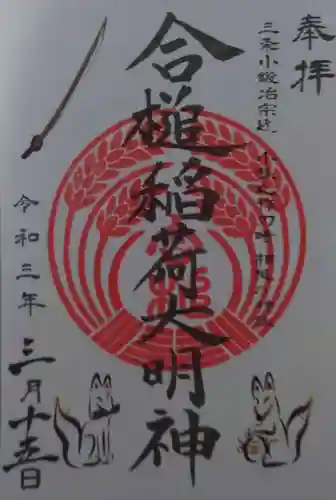 奉拝
三条小鍛冶宗近
合槌稲荷大明神
令和三年
三月十五日